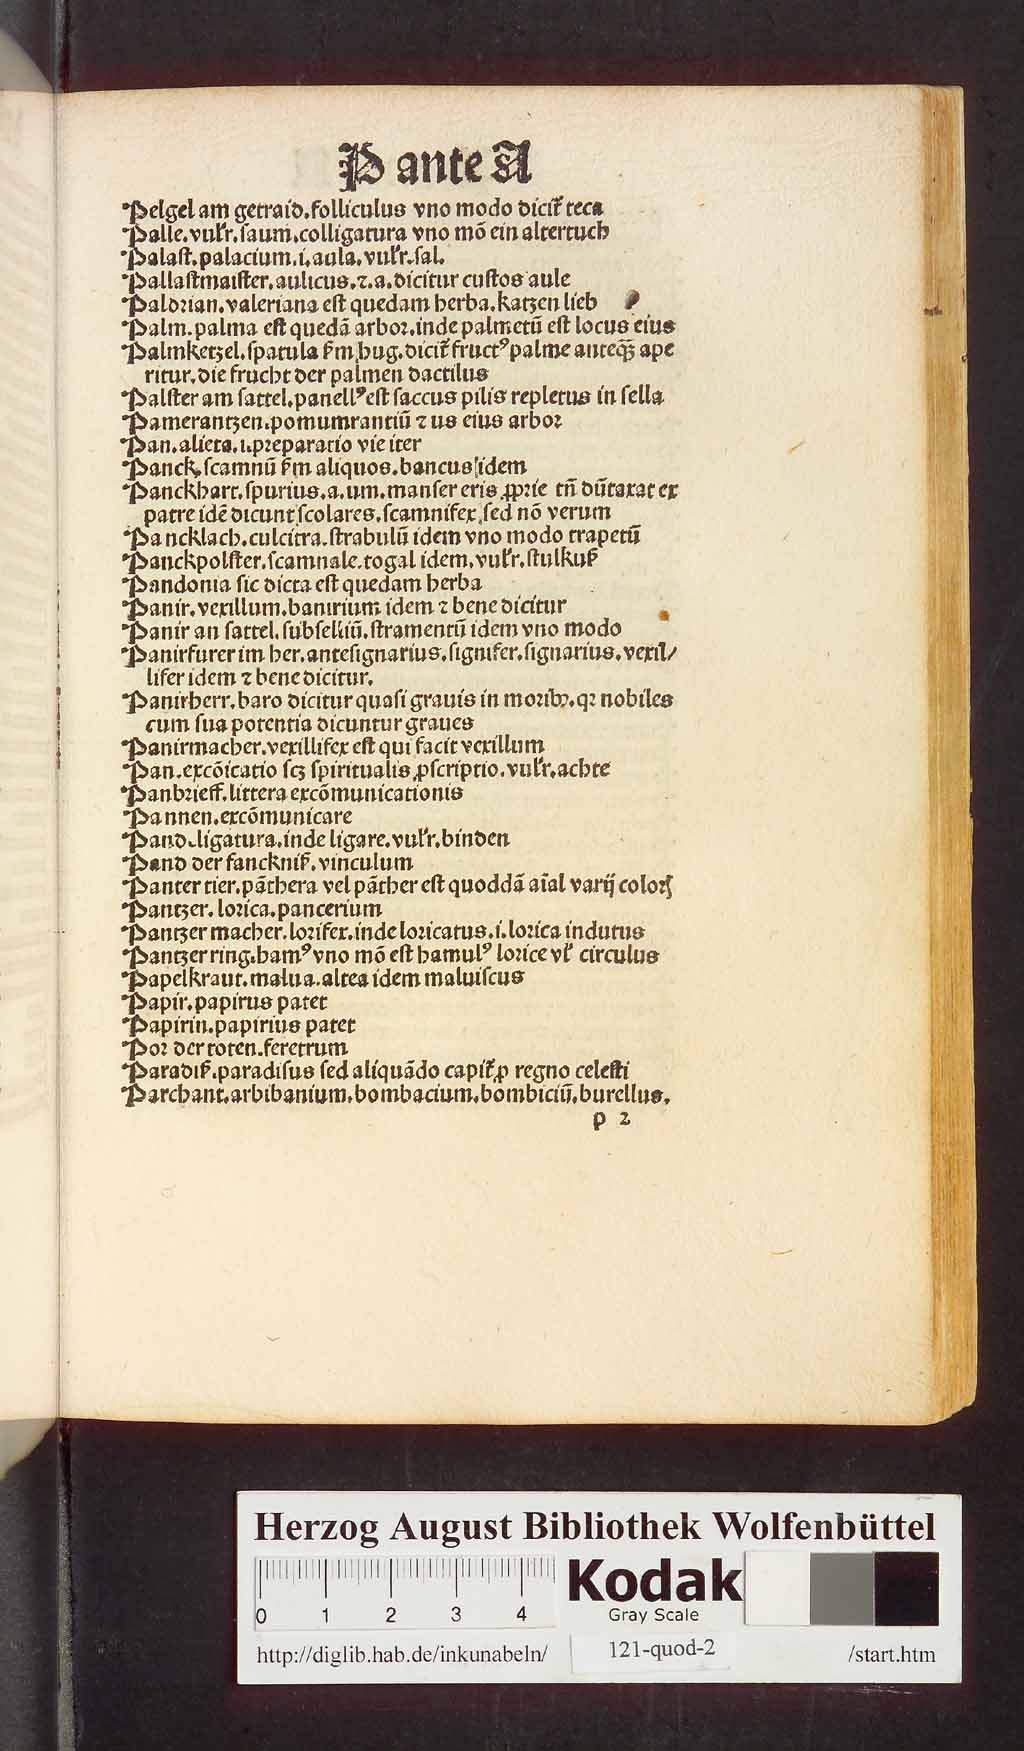 P ante A
Pelgel am getraid. folliculus vno modo dicit᷑ teca
Palle. vulr̃. saum. colligatura vno mõ ein altertuch
Palast. palacium. i. aula. vulr̃. sal.
Pallastmaister. aulicus. ⁊. a. dicitur custos aule
Paldrian. valeriana est quedam herba. katzen lieb
Palm. palma est quedã arbor. inde palmetũ est locus eius
Palmketzel. spatula ẜm hug. dicit᷑ fructꝰ palme anteq̃ ape
ritur. die frucht der palmen dactilus
Palster am sattel. panellꝰ est saccus pilis repletus in sella
Pamerantzen. pomumrantiũ ⁊ us eius arbor
Pan. alieta. i. preparatio vie iter
Panck. scamnũ ẜm aliquos. bancus idem
Panckhart. spurius. a. um. manser eris ꝓprie tñ dũtaxat ex
patre idẽ dicunt scolares. scamnifex sed nõ verum
Pancklach. culcitra. strabulũ idem vno modo trapetũ
Panckpolster. scamnale. togal idem. vulr̃. stulkuß
Pandonia sic dicta est quedam herba
Panir. vexillum. banirium idem ⁊ bene dicitur
Panir an sattel. subselliũ. stramentũ idem vno modo
Panirfurer im her. antesignarius. signifer. signarius. vexil/
lifer idem ⁊ bene dicitur.
Panirherr. baro dicitur quasi grauis in moribꝫ. qꝛ nobiles
cum sua potentia dicuntur graues
Panirmacher. vexillifex est qui facit vexillum
Pan. excõicatio scꝫ spiritualis ꝓscriptio. vulr̃. achte
Panbrieff. littera excõmunicationis
Pannen. excõmunicare
Pand. ligatura. inde ligare. vulr̃. binden
Pand der fanckniß. vinculum
Panter tier. pãthera vel pãther est quoddã aĩal varij colorꝭ
Pantzer. lorica. pancerium
Pantzer macher. lorifex. inde loricatus. i. lorica indutus
Pantzer ring. hamꝰ vno mõ est hamulꝰ lorice vl̃ circulus
Papelkraut. malua. altea idem maluiscus
Papir. papirus patet
Papirin. papirius patet
Por der toten. feretrum
Paradiß. paradisus sed aliquãdo capit᷑ ꝓ regno celesti
Parchant. arbibanium. bombacium. bombiciũ. burellus.
p 2
Herzog August Bibliothek Wolfenbüttel
0 1 2 3 4
Kodak
Gray Scale
http://diglib.hab.de/inkunabeln/ 121-quod-2 /start.htm